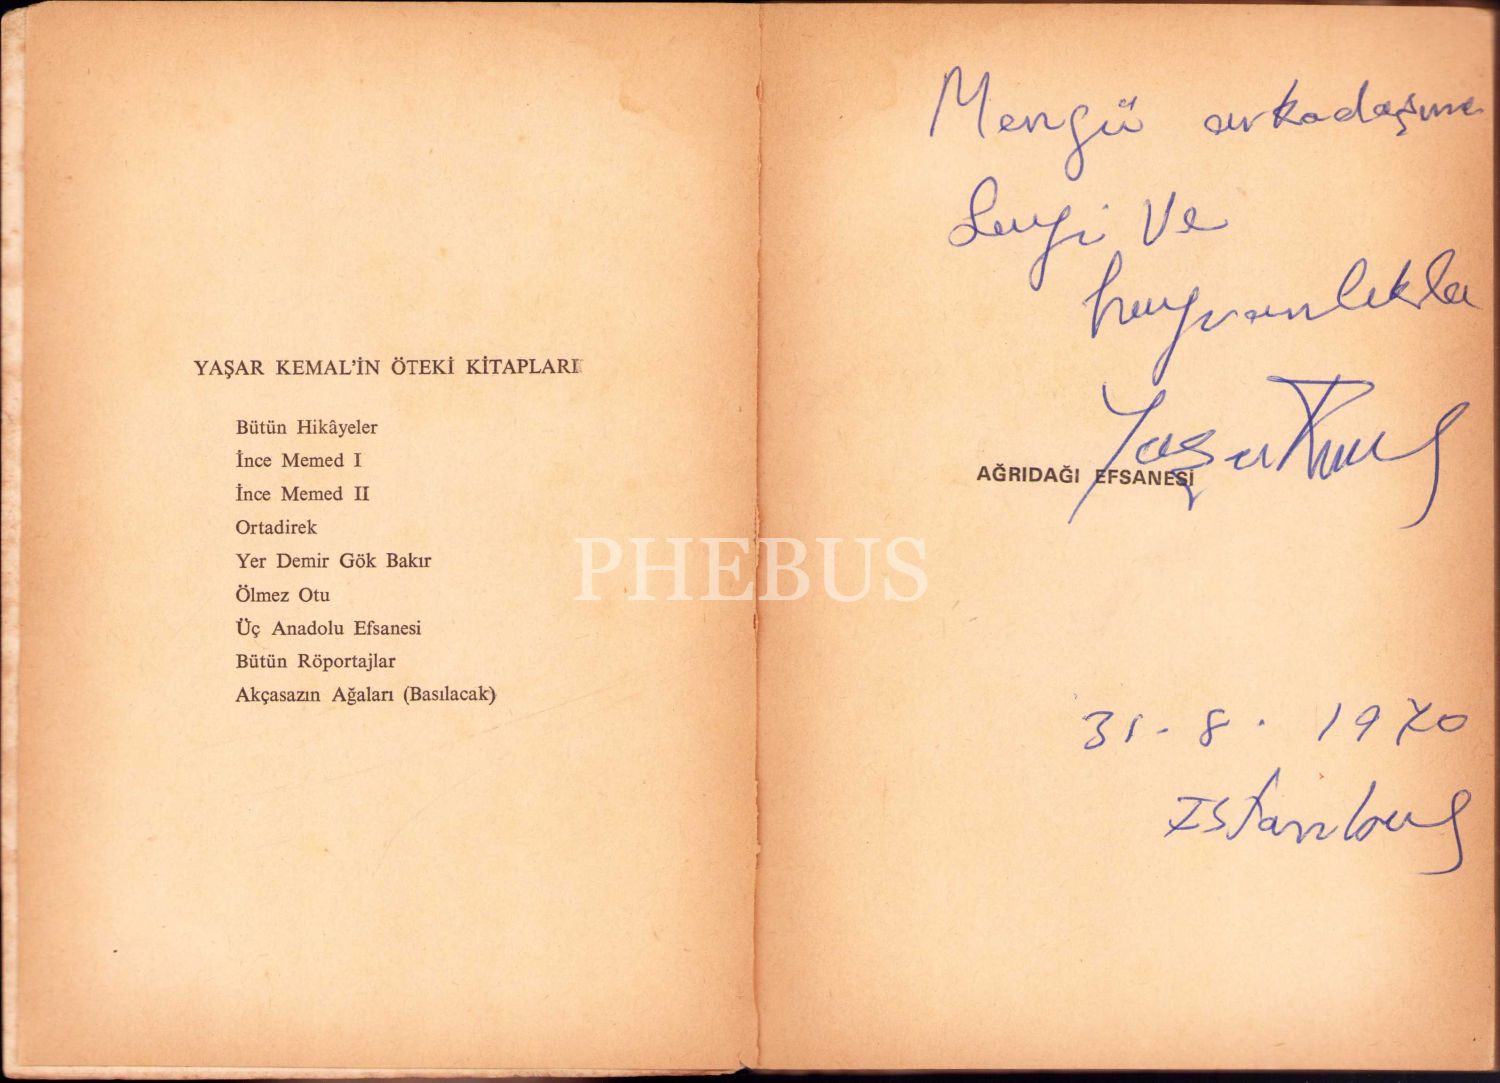 YAŞAR KEMAL'İN ÖTEKİ KİTAPLARI
Bütün Hikâyeler
İnce Memed I
İnce Memed II
Ortadirek
Yer Demir Gök Bakır
Ölmez Otu
Üç Anadolu Efsanesi
Bütün Röportajlar
Akçasazın Ağaları (Basılacak)
Mengü arkadaşıma
Sevgi ve
hayranlıkla
Yaşar Kemal
AĞRIDAĞI EFSANESİ
31-8.1970
İstanbul
PHEBUS